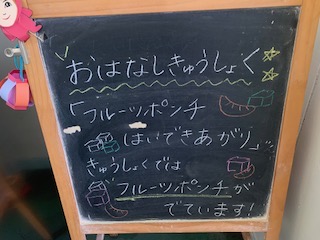 おはなしきゅうしょく
「フルーツポンチ
はいできあがり」
きゅうしょくでは
フルーツポンチが
でています!